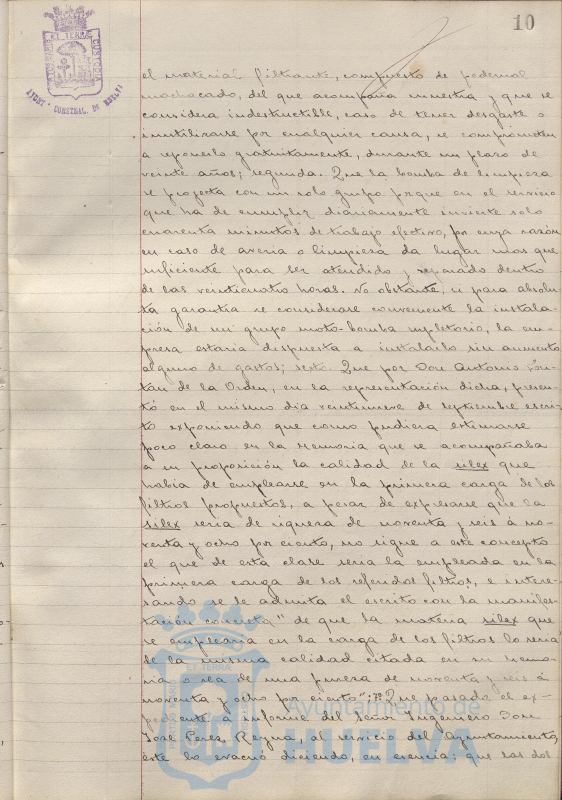 10
el material filtrante, compuesto de pedernal
machacado, del que acompaña muestra y que se
considera indestructible, caso de tener desgaste o
inutilizarse por cualquier causa, se comprometen
a reponerlo gratuitamente, durante un plazo de
veinte años; segunda. Que la bomba de limpieza
se proyecta con un solo grupo porque en el servicio
que ha de cumplir diariamente invierte solo
cuarenta minutos de trabajo efectivo, por cuya razón
en caso de averia o limpieza da lugar mas que
suficiente para ser atendido y reparado dentro
de las veinticuatro horas. No obstante, si para absolu-
ta garantia se considerase conveniente la instala-
ción de un grupo moto-bomba supletorio, la em-
presa estaria dispuesta a instalarlo sin aumento
alguno de gastos; sexto. Que por Don Antonio
de la Orden, en la representación dicha, presen-
tó en el mismo dia veintinueve de septiembre escri-
to exponiendo que como pudiera estimarse
poco claro en la Memoria que se acompañaba
a su proposición la calidad de la silex que
habia de emplearse en la primera carga de los
filtros propuestos, a pesar de expresarse que la
silex seria de riqueza de noventa y seis á no-
venta y ocho por ciento, no sigue a este concepto
el que de esta clase seria la empleada en la
primera carga de los referidos filtros, e intere-
sando se le admita el escrito con la manifes-
tación concreta "de que la materia silex que
se emplearia en la carga de los filtros lo seria
de la misma calidad citada en su Memo-
ria o sea de una pureza de noventa y seis á
noventa y ocho por ciento"; 7º Que pasado el ex-
pediente a informe del Señor Ingeniero Don
José Perez Reyna al servicio del Ayuntamiento,
este lo evacuó diciendo, en esencia: que las dos
Ayuntamiento de
HUELVA